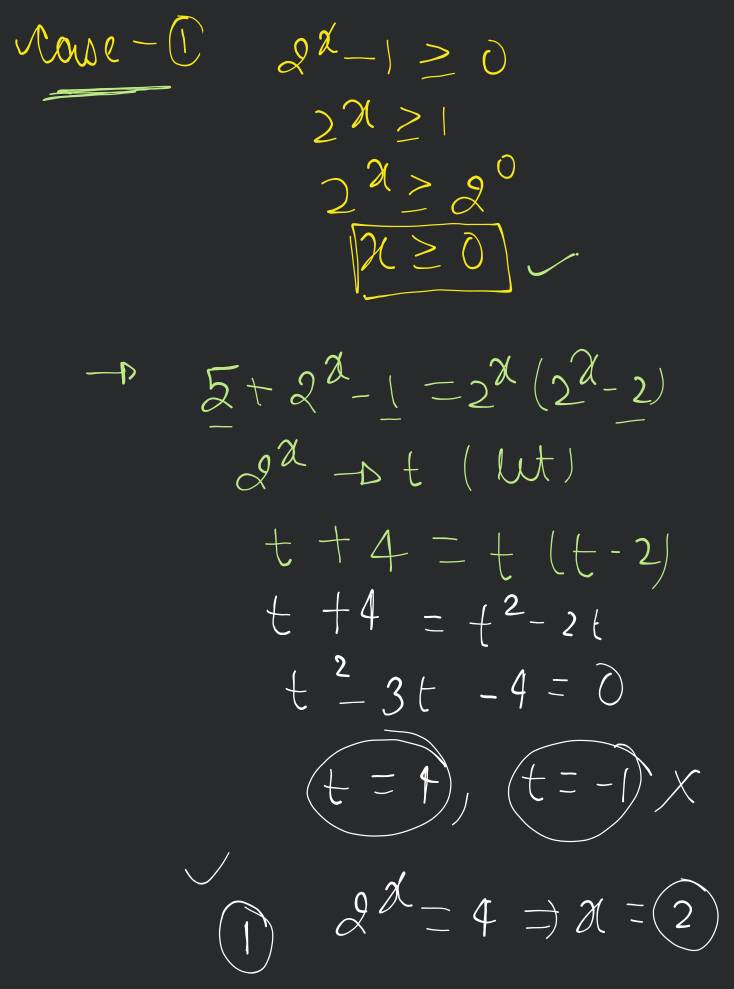 Case - ①
2^x - 1 ≥ 0
2^x ≥ 1
2^x ≥ 2^0
x ≥ 0 ✓
→ 5 + 2^x - 1 = 2^x (2^x - 2)
2^x → t (let)
t + 4 = t (t - 2)
t + 4 = t^2 - 2t
t^2 - 3t - 4 = 0
t = 4, t = -1 ×
✓ ① 2^x = 4 ⇒ x = ②